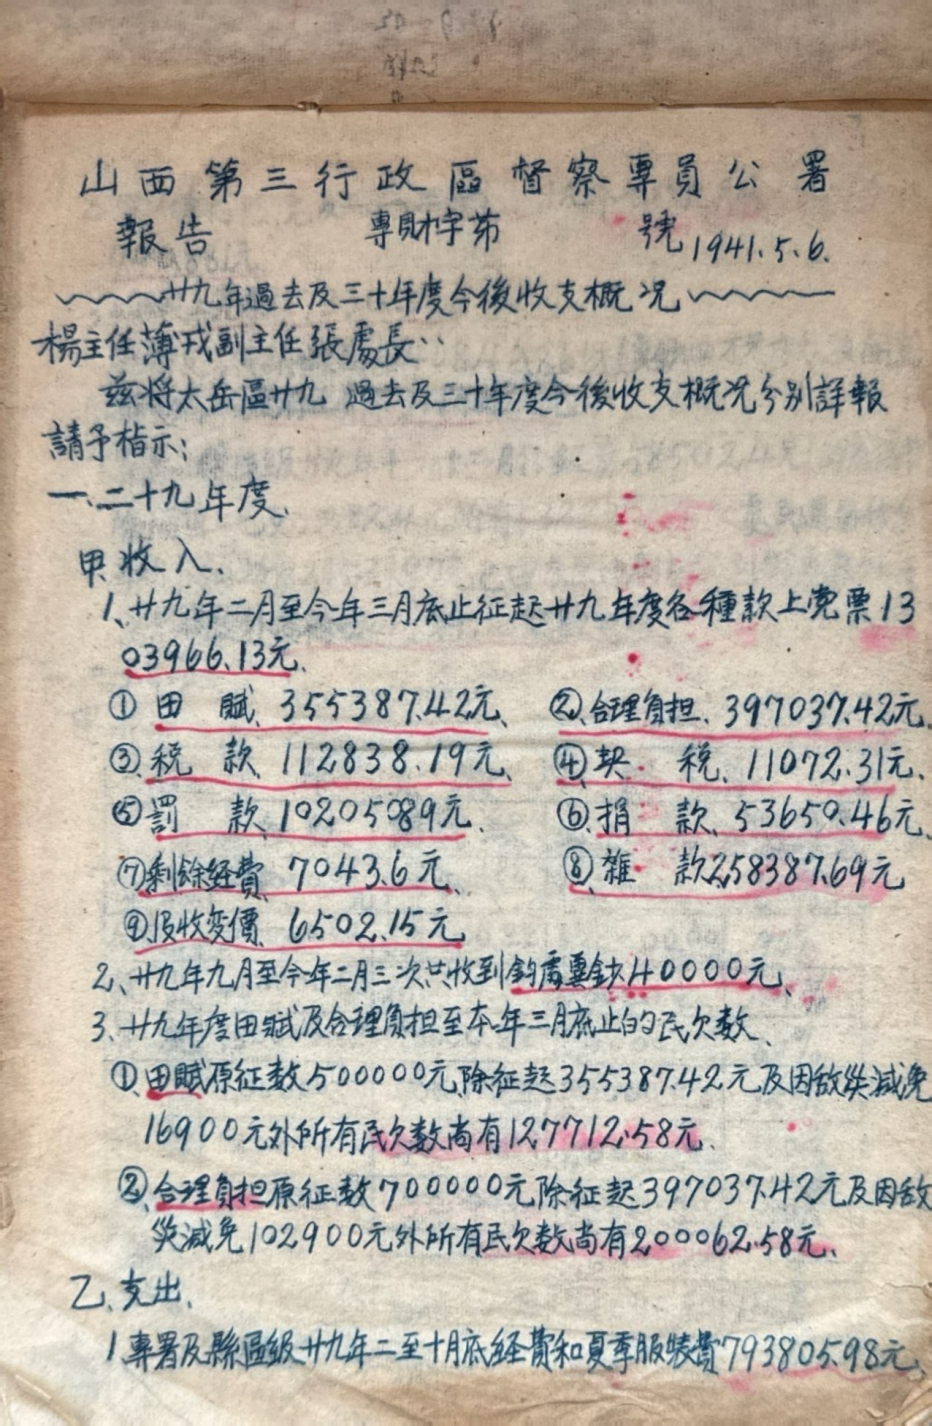 山西第三行政區督察專員公署
報告 專財字苐 號 1941.5.6.
廿九年過去及三十年度今後收支概況
楊主任薄戎副主任張處長：
茲將太岳區廿九 過去及三十年度今後收支概況分別詳報
請予指示；
一.二十九年度.
甲.收入.
1、廿九年二月至今年三月底止征起廿九年度各種款上党票13
03966.13元.
① 田 賦、355387.42元、 ②.合理負担、397037.42元.
③.税 款、112838.19元、 ④.契 税、11072.31元、
⑤罰 款、102050.89元. ⑥.捐 款、53650.46元、
⑦剩餘経費 7043.6元、 ⑧.雜 款258387.69元
⑨.没收变價、6502.15元
2、廿九年九月至今年二月三次共收到鈞處冀鈔40000元、
3、廿九年度田賦及合理負担至本年三月底止的民欠数、
①.田賦原征数500000元除征起355387.42元及因敌災減免
16900元外所有民欠数尚有127712.58元.
②.合理負担原征数700000元除征起397037.42元及因敌
災減免102900元外所有民欠数尚有200062.58元、
乙、支出.
1.專署及縣區級廿九年二至十月底経費和夏季服裝費793805.98元、